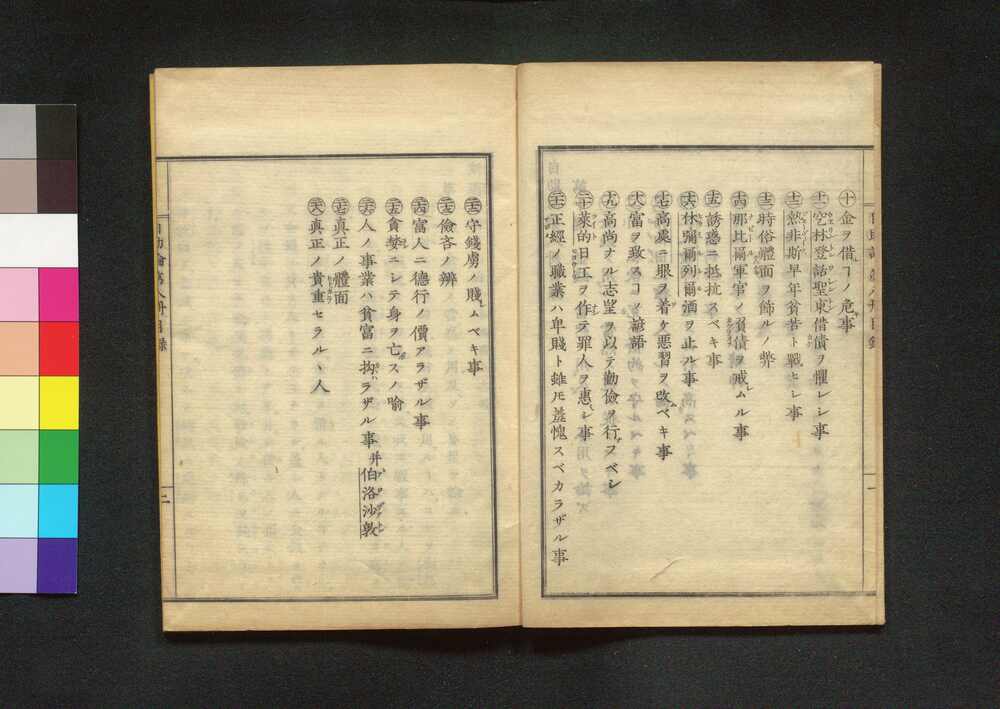 ㊉金ヲ借ルコノ危事
㊉一空林登話聖東借債ヲ懼レシ事
㊉二熱非斯早年貧苦ト戰ヒシ事
㊉三時俗體面ヲ飾ルノ弊
㊉四那比爾軍官ノ負債ヲ戒ムル事
㊉五誘惑ニ抵抗スベキ事
㊉六休彌爾列爾酒ヲ止ル事
十七高處ニ眼ヲ着ケ惡習ヲ改ムベキ事
十八富ヲ致スコノ諺語
十九高尚ナル志望ヲ以テ勤儉ヲ行フベシ
二十萊的日工ヲ作テ罪人ヲ惠ミシ事
二十一正經ノ職業ハ卑賤ト雖モ羞愧スベカラザル事
二十二守錢虜ノ賤ムベキ事
二十三儉吝ノ辨
二十四富人ニ德行ノ價アラザル事
二十五貪婪ニシテ身ヲ亡スノ喩
二十六人ノ事業ハ貧富ニ拘ハラザル事 并伯洛沙敦
二十七真正ノ體面
二十八真正ノ貴重セラルヽ人
二